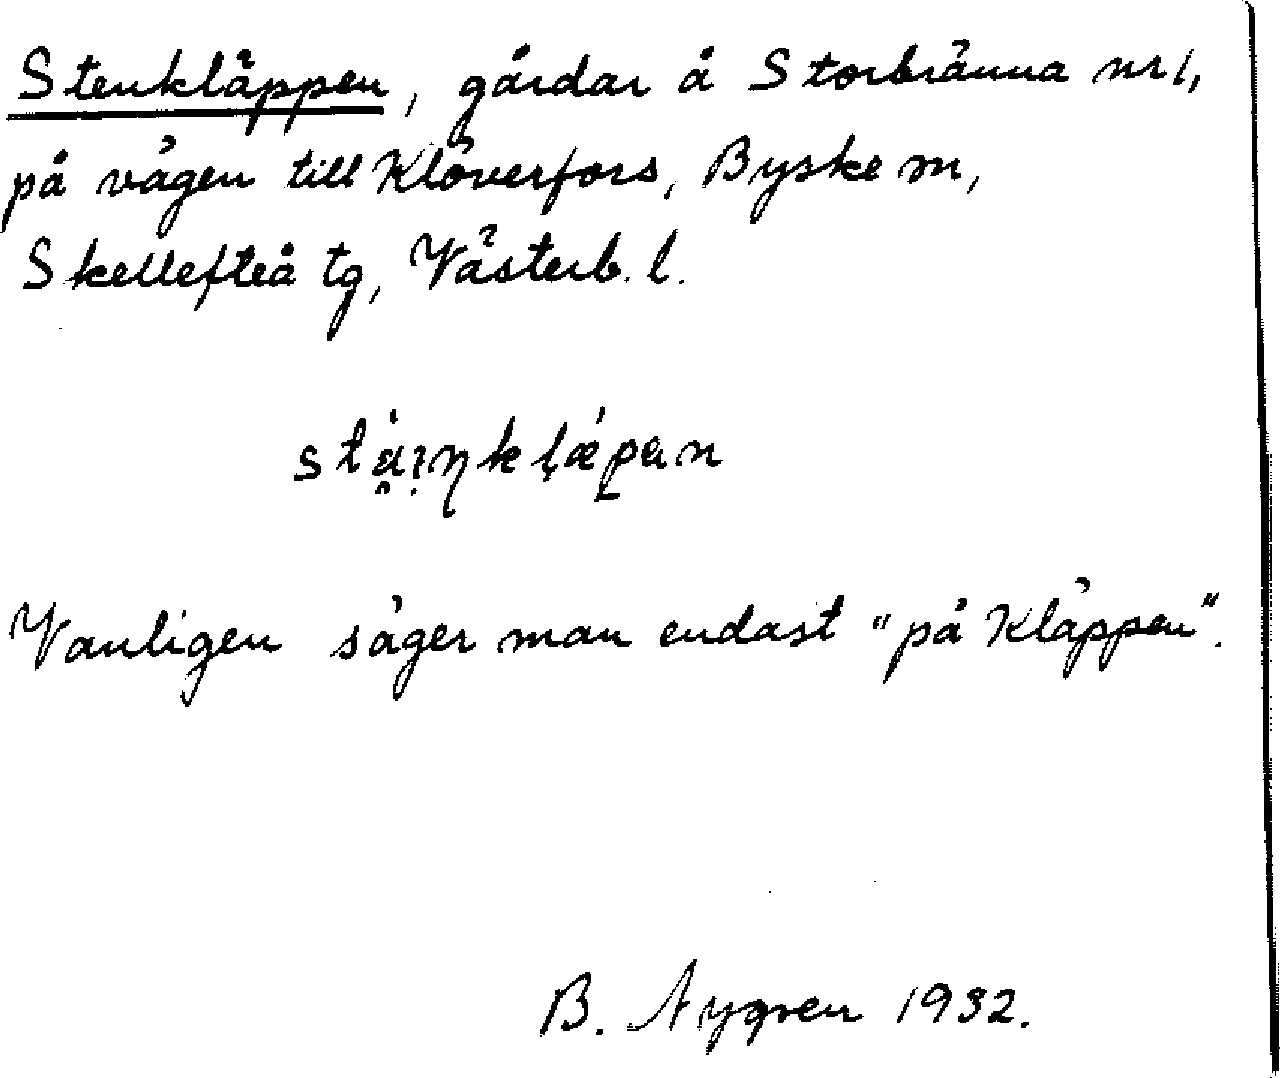 Stenkläppen, gårdar å Storbränna nr 1,
på vägen till Klöverfors, Byske sn,
Skellefteå tg, Västerb. l.
Vanligen säger man endast "på Kläppen".
B. Nygren 1932.